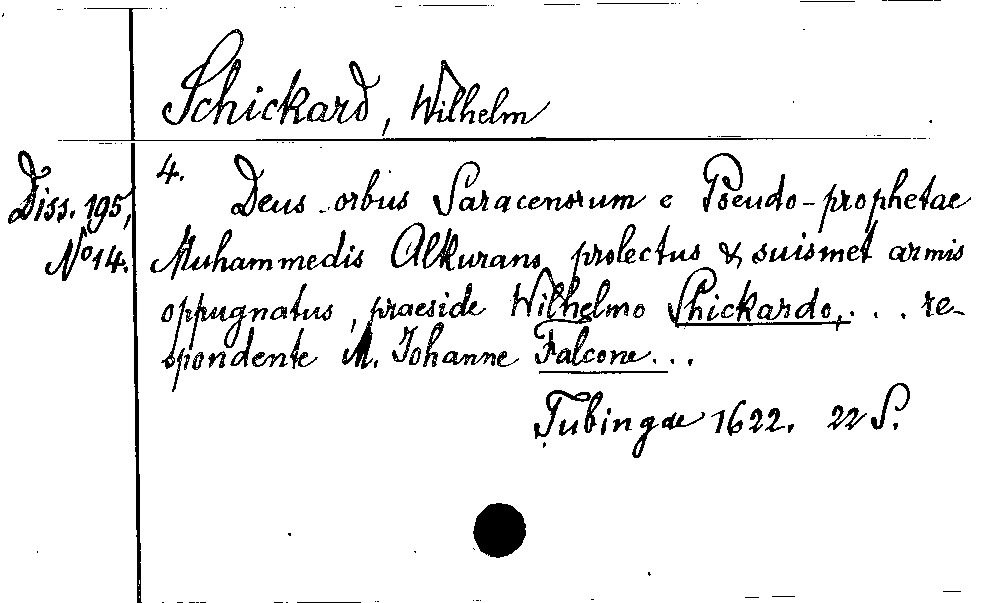 Schickard, Wilhelm
Diss. 195,
No 14.
4. Deus orbus Saracenorum e Pseudo-prophetae
Muhammedis Alkurano prolectus & suismet armis
oppugnatus, praeside Wilhelmo Shickardo, . . . re-
spondente M. Johanne Falcone . . .
Tubingae 1622. 22 S.